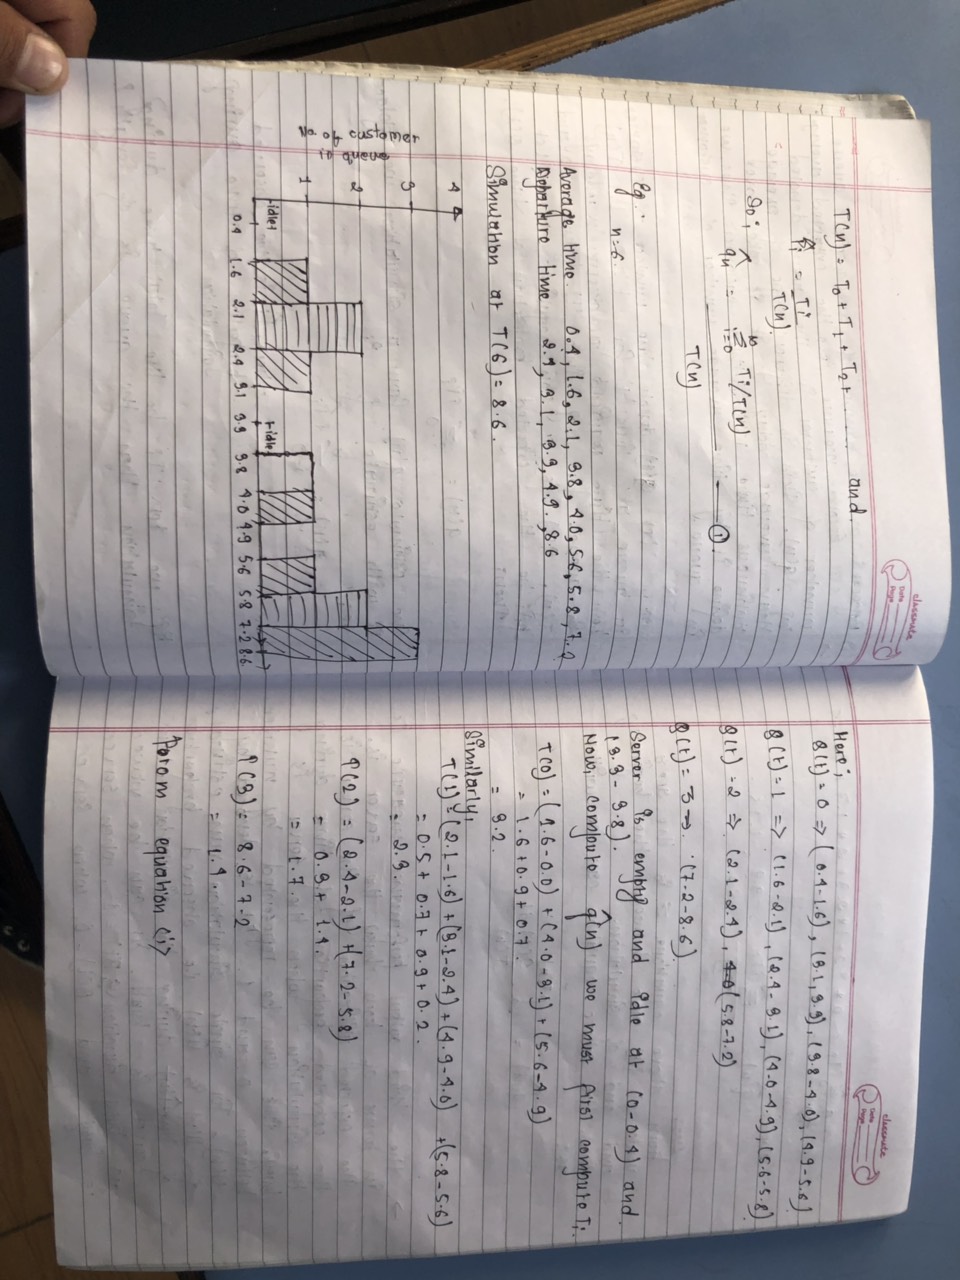 classmate
Date
Page
T(n) = T0 + T1 + T2 + ........ and
P̂i = Ti / T(n)
So, q̂n = ∞ Σ i=0 Ti/T(n)
T(n) — ①
Eg:
n=6.
Avarage time. 0.4, 1.6, 2.1, 3.8, 4.0, 5.6, 5.8, 7.2
Departure time 2.4, 3.1, 3.3, 4.9, 8.6
Simulation at T(6) = 8.6.
No of customer
in
4
3
2
1
idle
idle
0.4 1.6 2.1 2.4 3.1 3.3 3.8 4.0 4.9 5.6 5.8 7.2 8.6
classmate
Date
Page
Here;
Q(t) = 0 => (0.4-1.6), (3.1, 3.3), (3.8-4.0), (4.9-5.6)
Q(t) = 1 => (1.6-2.1), (2.4-3.1), (4.0-4.9), (5.6-5.8)
Q(t) = 2 => (2.1-2.4), (5.8-7.2)
Q(t) = 3 → (7.2-8.6).
Server is empty and idle at (0-0.4) and
(3.3-3.8).
Now, compute q̂(n) we must first compute Ti.
T(0) = (1.6-0.0) + (4.0-3.1) + (5.6-4.9)
= 1.6+0.9+0.7.
= 3.2.
Similarly,
T(1) = (2.1-1.6) + (3.1-2.4) + (4.9-4.0) + (5.8-5.6)
= 0.5 + 0.7 + 0.9 + 0.2.
= 2.3.
T(2) = (2.4-2.1) + (7.2-5.8)
= 0.3 + 1.4.
= 1.7.
T(3) = 8.6-7.2
= 1.4.
From equation (i)